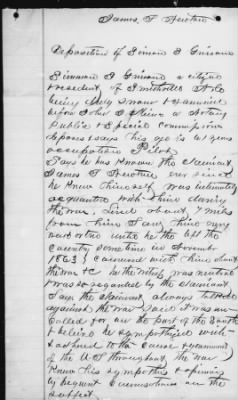 James F Newton
Deposition of Simeon S Guisana
Simeon S Guisana a citizen
resident of Smithville Ark
being duly sworn & examined
before John a Notary
Public & Special Commissioner
deposes & says his age is 61 years
occupation
Says he has known the claimant
James F ever since
he knew himself was intimately
acquainted with him during
the war, lived about 7 miles
from him & saw him very
until he the left the
County sometime in November
1863 & conversed with him about
the war & he was neutral
& was so regarded by the claimant
Says the claimant always talked
against the war, said it was un
called for on the part of the South
& believe he sympathized with
& adhered to the cause & government
of the U.S throughout the war
Knew his sympathies & opinions
by frequent conversations on the
subject.